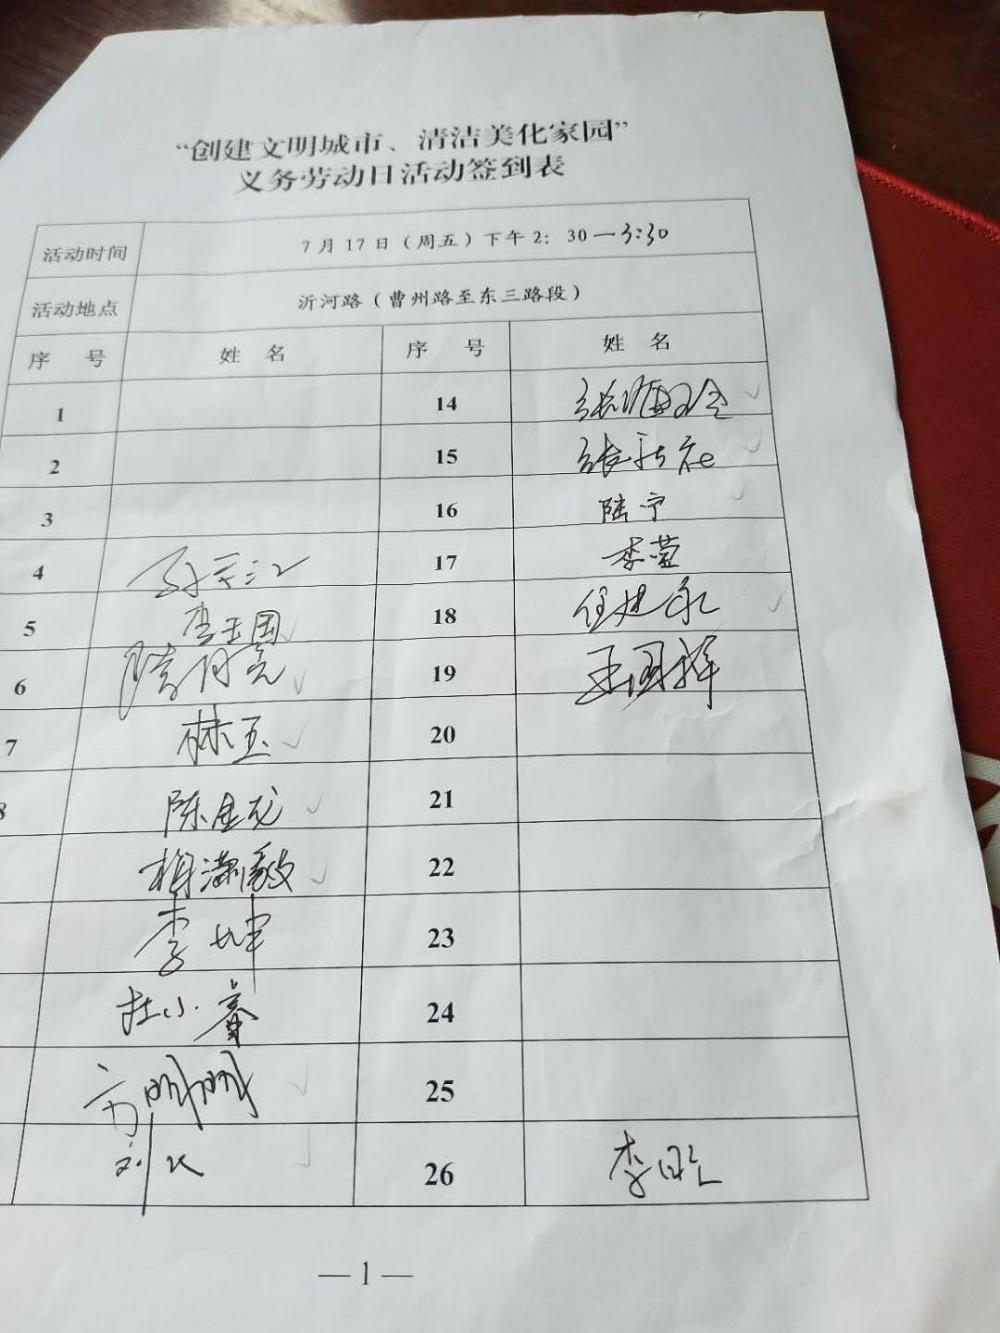 “创建文明城市、清洁美化家园”
义务劳动日活动签到表
活动时间 7月17日（周五）下午2：30—3:30
活动地点 沂河路（曹州路至东三路段）
序 号 姓 名 序 号 姓 名
1 14
2 15
3 16 陆宁
4 17 李莹
5 李玉国 18 任建永
6 19 王国辉
7 林玉 20
8 陈金龙 21
相潇毅 22
李坤 23
杜小睿 24
方明明 25
刘 26 李
— 1 —